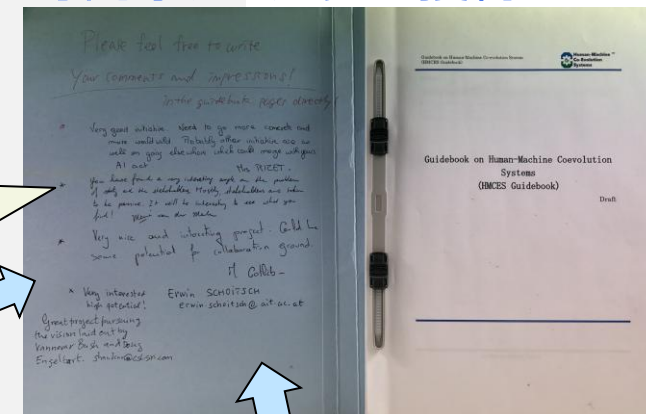 Please feel free to write
Your comments and impressions!
in the guidebook pages directly!
* Very good initiative. Need to go more concrete and
more worldwild. Probably other initiative too as
well on going elsewhere which could merge with yours
AI act
* you have found a very interesting angle on the problem
of safety are the stakeholders. Mostly, stakeholders are taken
to be passive. It will be interesting to see what you
find!
* Very nice and interesting project. Could be
some potential for collaboration ground.
* Very interested
high potential!
Erwin SCHOITSCH
erwin.schoitsch@ait.ac.at
Great project pursuing
the vision laid out by
Vannevar Bush and Doug
Engelbart.
Guidebook on Human-Machine Co-evolution Systems
(HMCES Guidebook)
Human-Machine
Co-Evolution
Systems
Guidebook on Human-Machine Coevolution
Systems
(HMCES Guidebook)
Draft